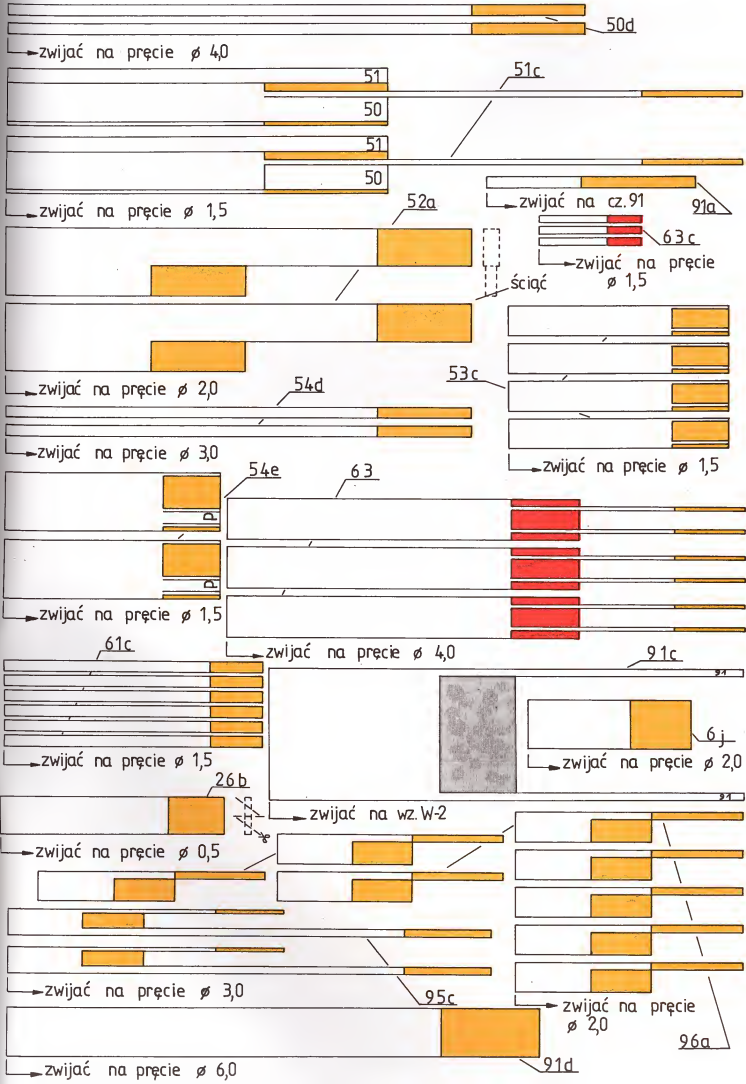 50d
zwijać na pręcie ø 4,0
51
51c
50
51
50
zwijać na pręcie ø 1,5
zwijać na cz.91
91a
52a
63c
zwijać na pręcie
ø 1,5
ściąć
zwijać na pręcie ø 2,0
53c
54d
zwijać na pręcie ø 3,0
zwijać na pręcie ø 1,5
54e
63
P
P
zwijać na pręcie ø 1,5
zwijać na pręcie ø 4,0
61c
91c
91
6j
zwijać na pręcie ø 1,5
zwijać na pręcie ø 2,0
26b
91
zwijać na wz.W-2
zwijać na pręcie ø 0,5
zwijać na pręcie ø 3,0
95c
zwijać na pręcie
ø 2,0
96a
zwijać na pręcie ø 6,0
91d